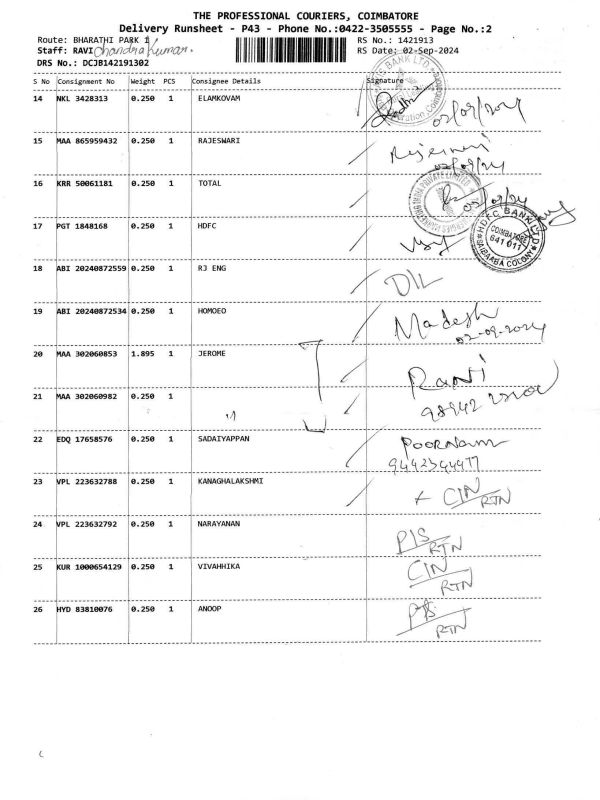 THE PROFESSIONAL COURIERS, COIMBATORE
Delivery Runsheet - P43 - Phone No.:0422-3505555 - Page No.:2
Route: BHARATHI PARK 1 RS No.: 1421913
Staff: RAVI chandra kumar. RS Date: 02-Sep-2024
DRS No.: DCJB142191302
S No Consignment No Weight PCS Consignee Details Signature
14 NKL 3428313 0.250 1 ELAMKOVAM
02/09/2024
15 MAA 865959432 0.250 1 RAJESWARI
02/09/24
16 KRR 50061181 0.250 1 TOTAL
02/09/24
17 PGT 1848168 0.250 1 HDFC
HDFC BANK LTD
COIMBATORE
641 011
SAIBAABA COLONY
18 ABI 20240872559 0.250 1 RJ ENG
D/L
19 ABI 20240872534 0.250 1 HOMOEO Madesh
02-09-2024
20 MAA 302060853 1.895 1 JEROME
Rani
21 MAA 302060982 0.250 1
22 EDQ 17658576 0.250 1 SADAIYAPPAN
9442344477
23 VPL 223632788 0.250 1 KANAGHALAKSHMI
CIN/RTN
24 VPL 223632792 0.250 1 NARAYANAN
P/S
RTN
25 KUR 1000654129 0.250 1 VIVAHHIKA CIN
RTN
26 HYD 83810076 0.250 1 ANOOP P/S
RTN